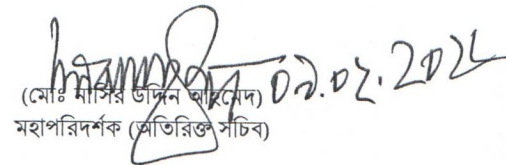 ০৯.০২.2024
(মোঃ নাসির উদ্দিন আহমেদ)
মহাপরিদর্শক (অতিরিক্ত সচিব)